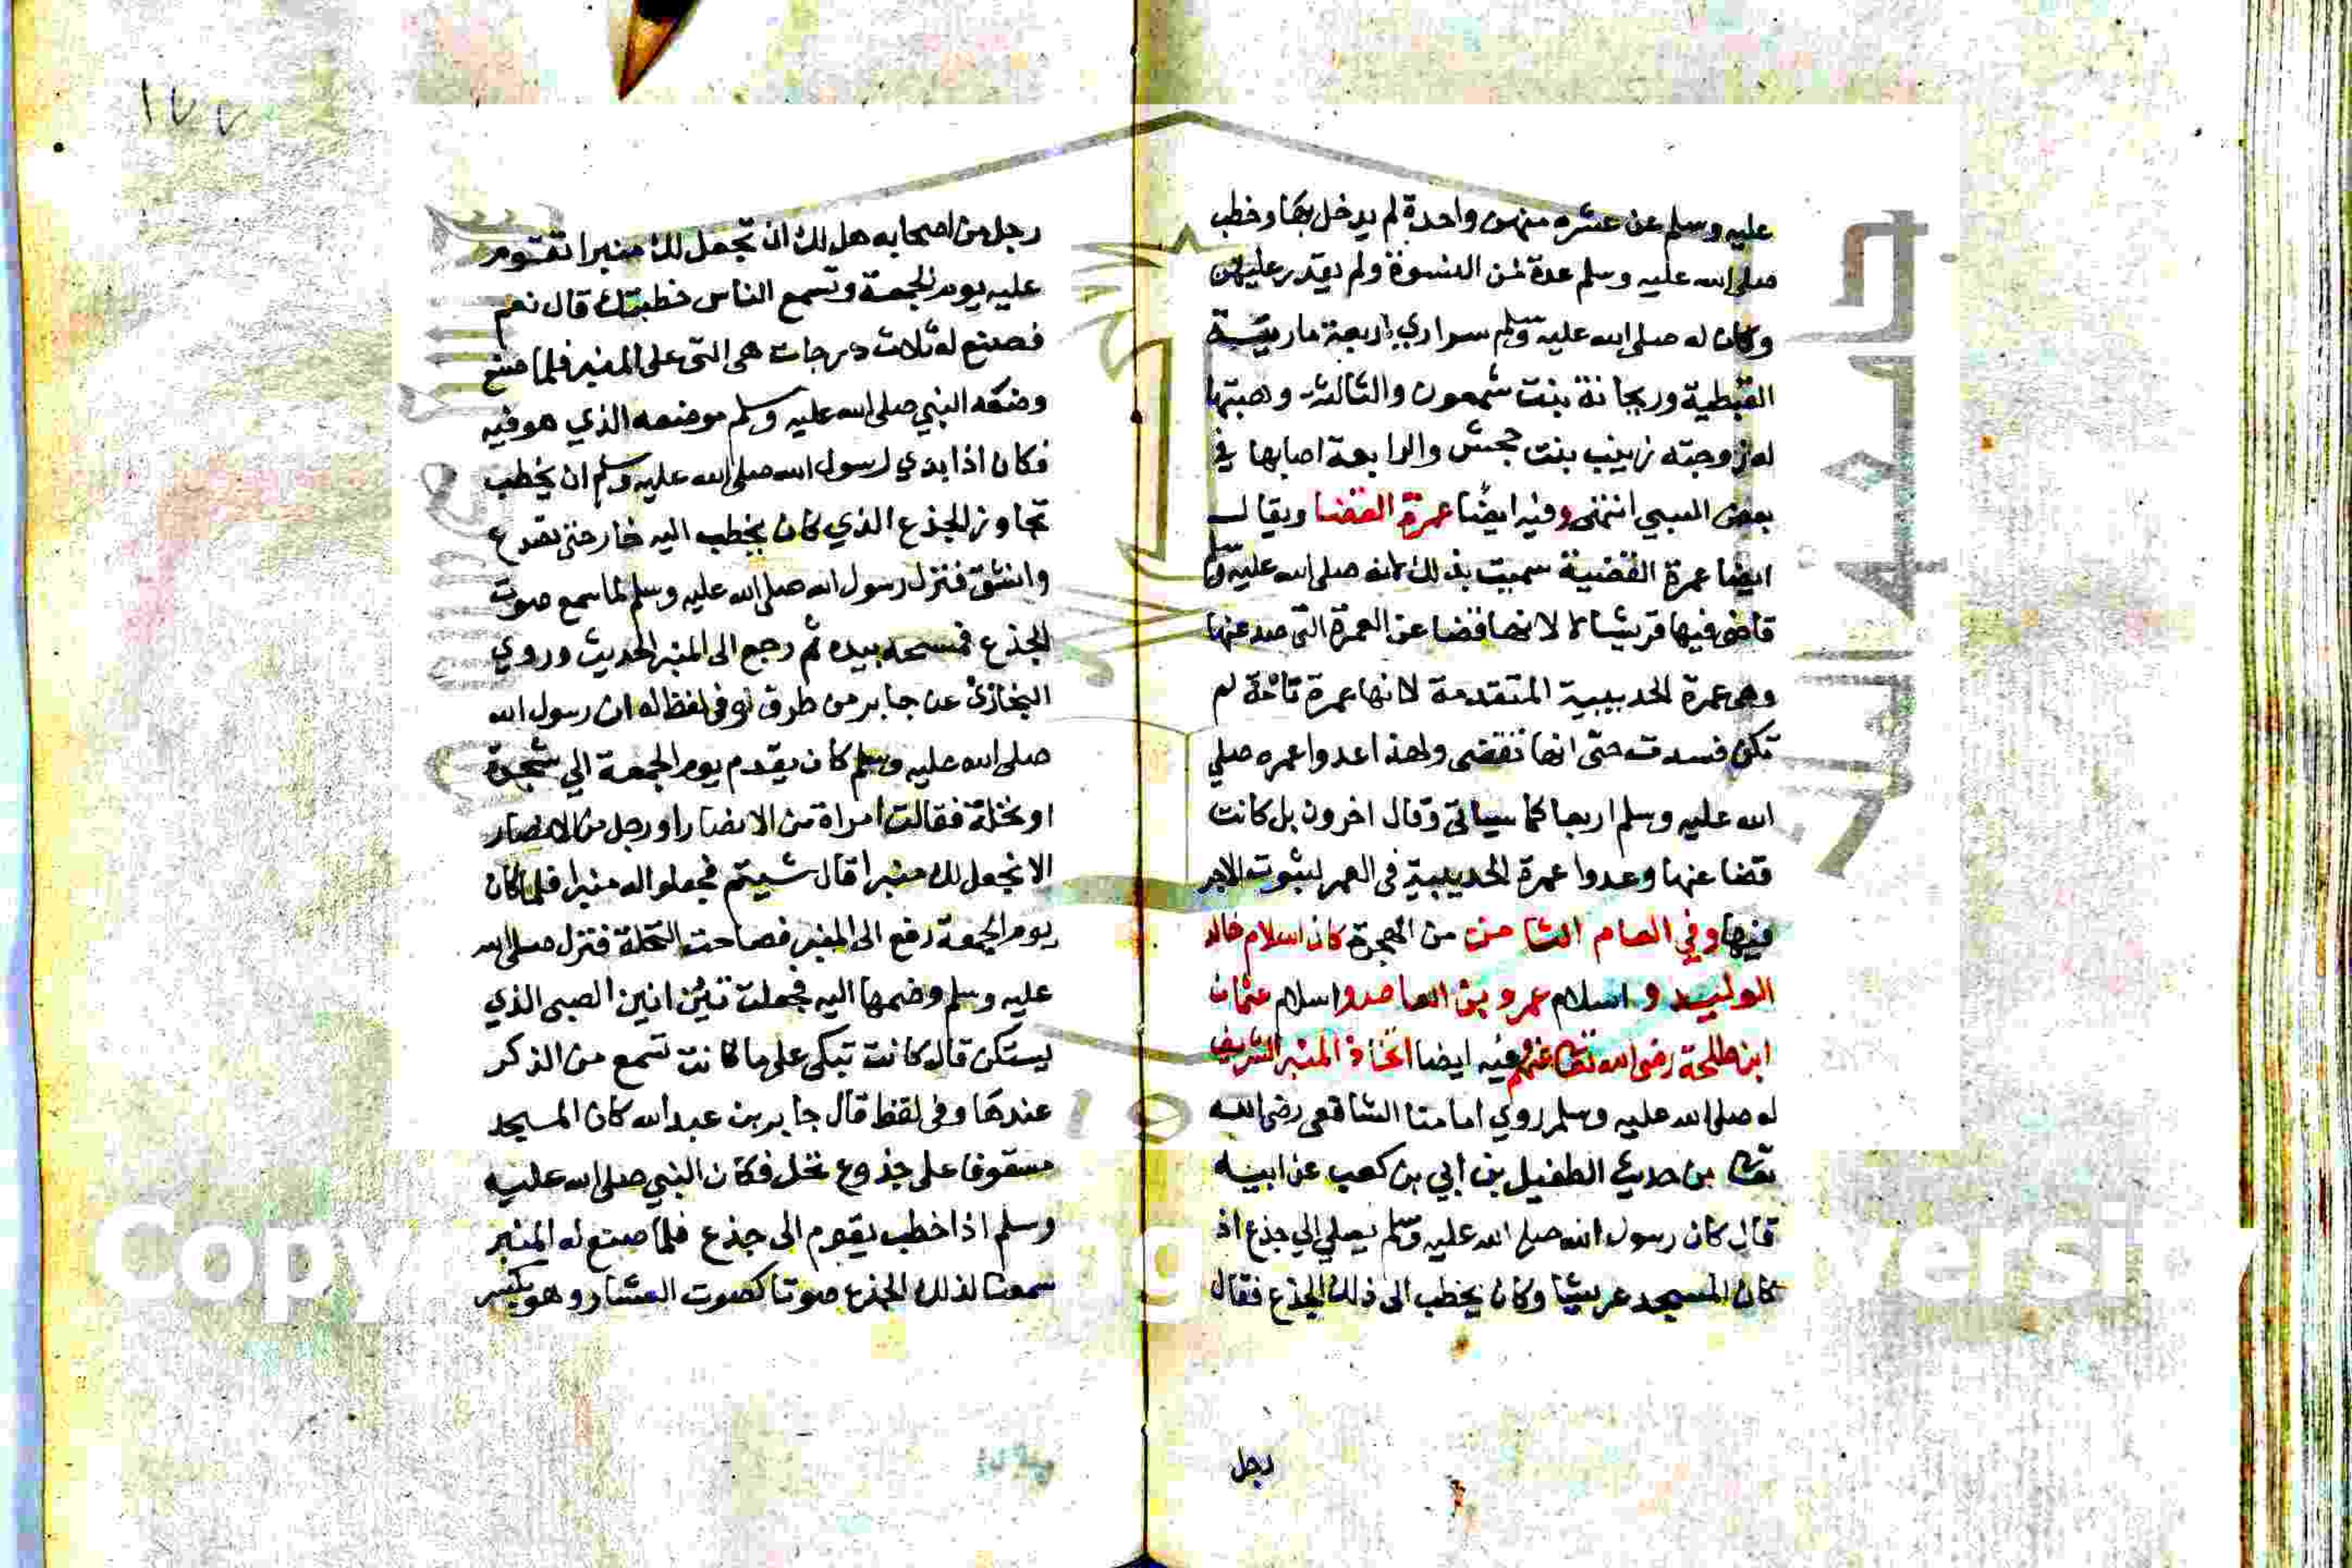 عليه وسلم عن عشره منهن واحدة لم يدخل بها وخطب
صلى الله عليه وسلم عدة من النسوة ولم يقدر عليهن
وكان له صلى الله عليه وسلم سراري اربعة مارية
القبطية وريحانة بنت شمعون والثالثة وهبتها
له زوجته زينب بنت جحش والرابعة اصابها في
بعض السبي انتهى وفيه ايضا عمرة القضا ويقال
ايضا عمرة القضية سميت بذلك لانه صلى الله عليه وسلم
قاضى فيها قريشا لا لانها قضا عن العمرة التي صد عنها
وهي عمرة الحديبية المتقدمة لانها عمرة تامة لم
تكن فسدت حتى انها تقضى ولهذا عدوا عمره صلي
الله عليه وسلم اربعا كما سياتي وقال اخرون بل كانت
قضا عنها وعدوا عمرة الحديبية في العمر لثبوت الاجر
فيها وفي العام الثامن من الهجرة كان اسلام خالد
الوليد و اسلام عمرو بن العاص واسلام عثمان
ابن طلحة رضى الله تعا عنهم وفيه ايضا اتخاذ المنبر الشريف
له صلى الله عليه وسلم روي امامنا الشافعى رضى الله
تعا من حديث الطفيل بن ابي بن كعب عن ابيه
قال كان رسول الله صلى الله عليه وسلم يصلي الي جذع اذ
كان المسجد عريشا وكان يخطب الى ذلك الجذع فقال
رجل
١٧٧
رجل من اصحابه هل لك ان تجعل لك منبرا تقوم
عليه يوم الجمعة وتسمع الناس خطبتك قال نعم
فصنع له ثلاث درجات هى التى على المنبر فلما صنع
وضعه النبي صلى الله عليه وسلم موضعه الذي هو فيه
فكان اذا بدي لرسول الله صلى الله عليه وسلم ان يخطب
تجاوز الجذع الذي كان يخطب اليه خار حتى تصدع
وانشق فنزل رسول الله صلى الله عليه وسلم لما سمع صوت
الجذع فمسحه بيده ثم رجع الى المنبر الحديث وروي
البخاري عن جابر من طرق وفى لفظ له ان رسول الله
صلى الله عليه وسلم كان يقدم يوم الجمعة الي شجرة
او نخلة فقالت امراة من الانصار او رجل من الانصار
الا نجعل لك منبرا قال شيتم فجعلوا له منبرا فلما كان
يوم الجمعة رفع الى المنبر فصاحت النخلة فنزل صلى الله
عليه وسلم وضمها اليه فجعلت تئن انين الصبى الذي
يستكن قال كانت تبكى على ما كانت تسمع من الذكر
عندها وفى لفظ قال جابر بن عبد الله كان المسجد
مسقوفا على جذوع نخل فكان النبي صلى الله عليه
وسلم اذا خطب يقوم الى جذع فلما صنع له المنبر
سمعنا لذلك الجذع صوتا كصوت العشار وهو